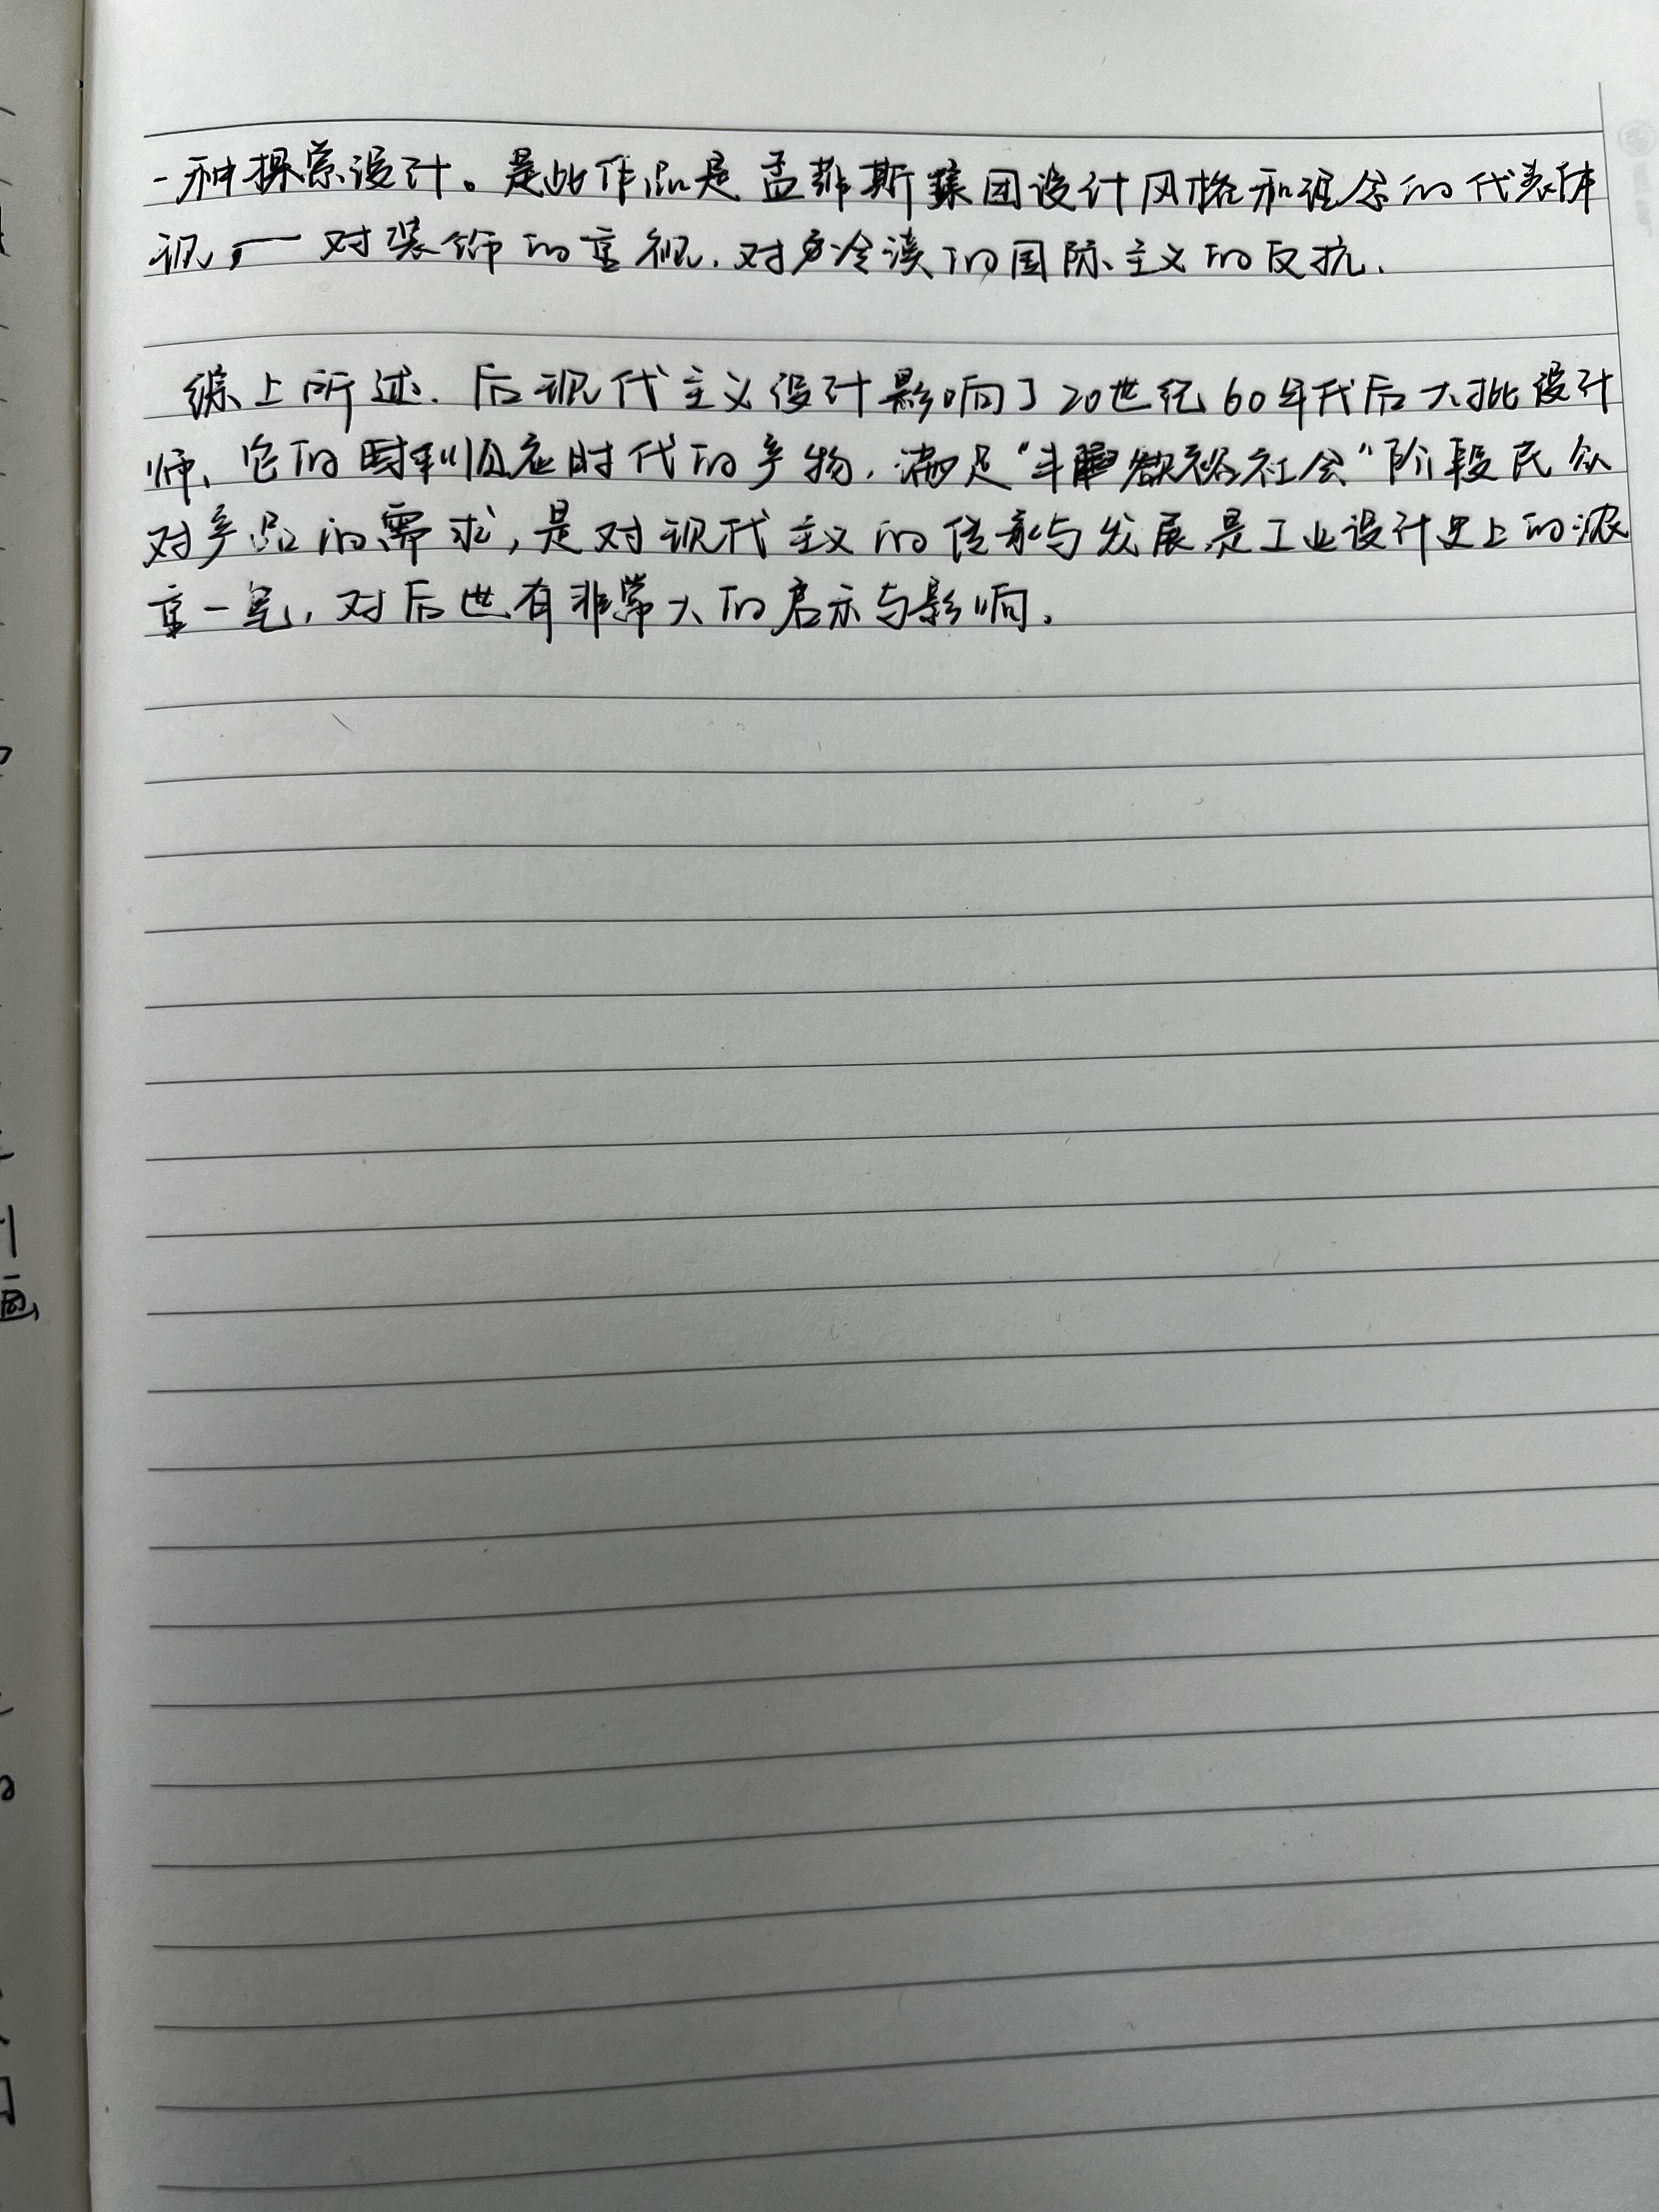 一种探索设计。是此作品是孟菲斯集团设计风格和理念的代表体
现,一对装饰的重视.对冷淡的国际主义的反抗.
综上所述.后现代主义设计影响了20世纪60年代后大批设计
师、它的时利顺应时代的产物.满足“丰裕社会”阶段民众
对产品的需求,是对现代主义的传承与发展,是工业设计史上的浓
重一笔,对后世有非常大的启示与影响.
画